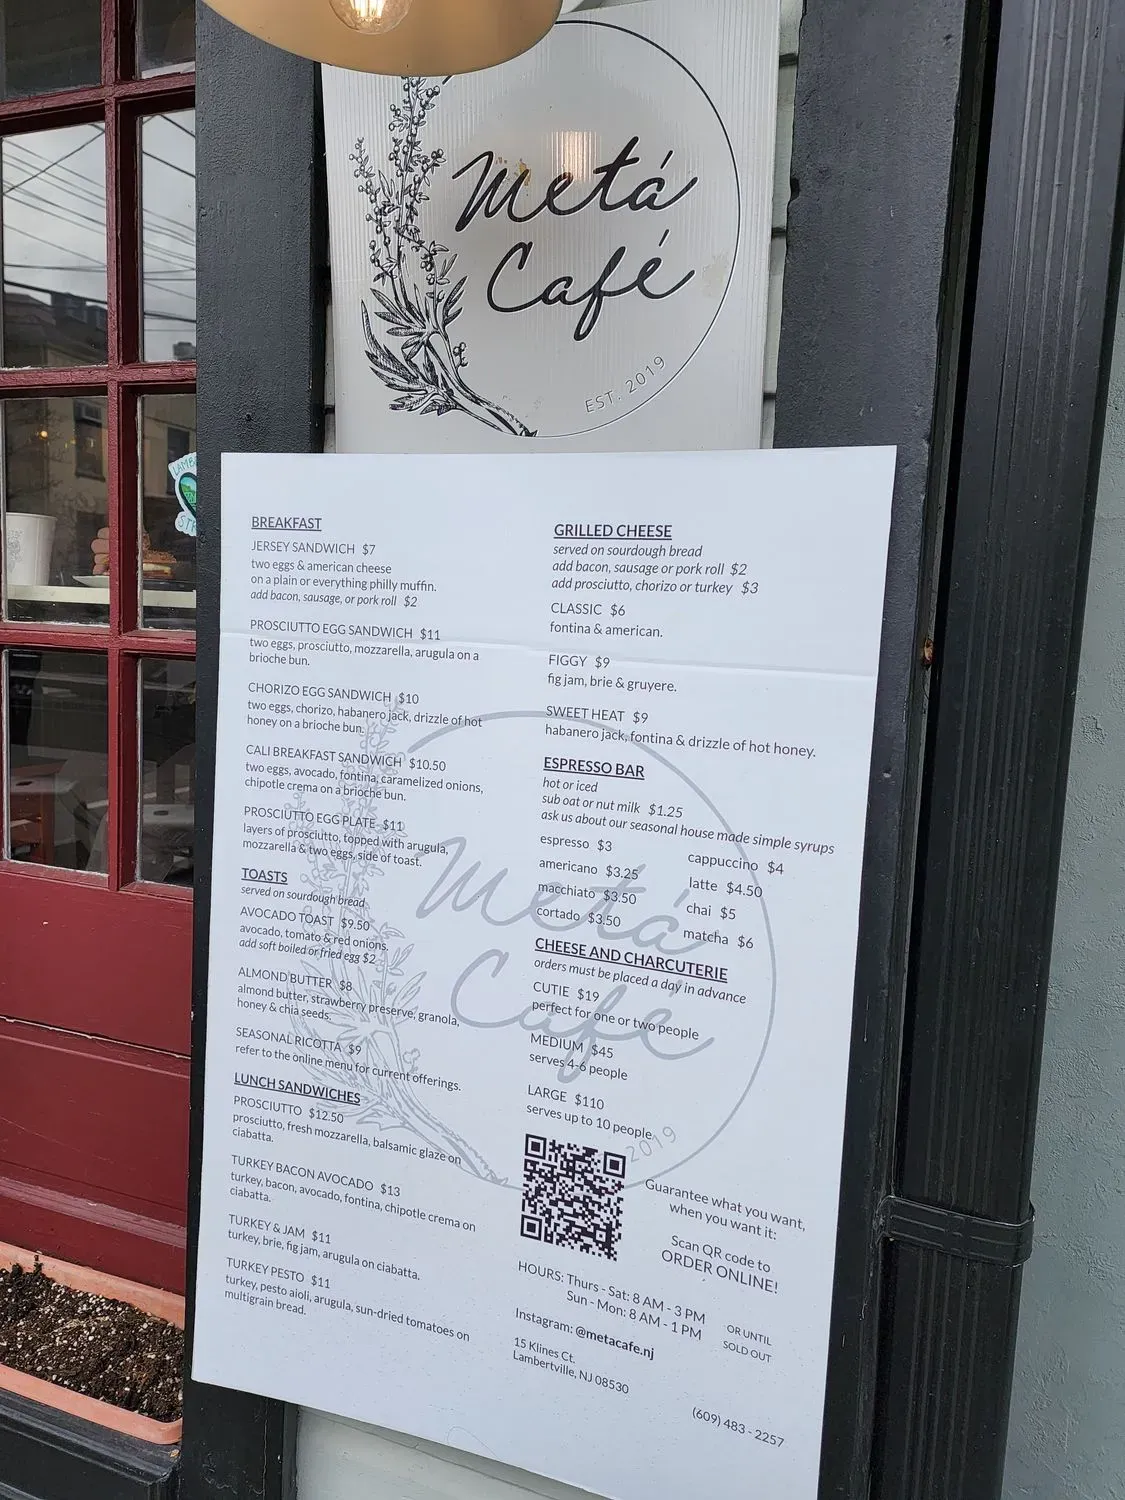 Metá
Café
EST. 2019
LAMB
STR
BREAKFAST
JERSEY SANDWICH $7
two eggs & american cheese
on a plain or everything philly muffin.
add bacon, sausage, or pork roll $2
PROSCIUTTO EGG SANDWICH $11
two eggs, prosciutto, mozzarella, arugula on a
brioche bun.
CHORIZO EGG SANDWICH $10
two eggs, chorizo, habanero jack, drizzle of hot
honey on a brioche bun.
CALI BREAKFAST SANDWICH $10.50
two eggs, avocado, fontina, caramelized onions,
chipotle crema on a brioche bun.
PROSCIUTTO EGG PLATE $11
layers of prosciutto, topped with arugula,
mozzarella & two eggs, side of toast.
TOASTS
served on sourdough bread
AVOCADO TOAST $9.50
avocado, tomato & red onions.
add soft boiled or fried egg $2
ALMOND BUTTER $8
almond butter, strawberry preserve, granola,
honey & chia seeds.
SEASONAL RICOTTA $9
refer to the online menu for current offerings.
LUNCH SANDWICHES
PROSCIUTTO $12.50
prosciutto, fresh mozzarella, balsamic glaze on
ciabatta.
TURKEY BACON AVOCADO $13
turkey, bacon, avocado, fontina, chipotle crema on
ciabatta.
TURKEY & JAM $11
turkey, brie, fig jam, arugula on ciabatta.
TURKEY PESTO $11
turkey, pesto aioli, arugula, sun-dried tomatoes on
multigrain bread.
GRILLED CHEESE
served on sourdough bread
add bacon, sausage or pork roll $2
add prosciutto, chorizo or turkey $3
CLASSIC $6
fontina & american.
FIGGY $9
fig jam, brie & gruyere.
SWEET HEAT $9
habanero jack, fontina & drizzle of hot honey.
ESPRESSO BAR
hot or iced
sub oat or nut milk $1.25
ask us about our seasonal house made simple syrups
espresso $3
americano $3.25
macchiato $3.50
cortado $3.50
cappuccino $4
latte $4.50
chai $5
matcha $6
CHEESE AND CHARCUTERIE
orders must be placed a day in advance
CUTIE $19
perfect for one or two people
MEDIUM $45
serves 4-6 people
LARGE $110
serves up to 10 people
Metá
Café
2019
Guarantee what you want,
when you want it:
Scan QR code to
ORDER ONLINE!
HOURS: Thurs - Sat: 8 AM - 3 PM
Sun - Mon: 8 AM - 1 PM
OR UNTIL
SOLD OUT
Instagram: @metacafe.nj
15 Klines Ct.
Lambertville, NJ 08530
(609) 483 - 2257